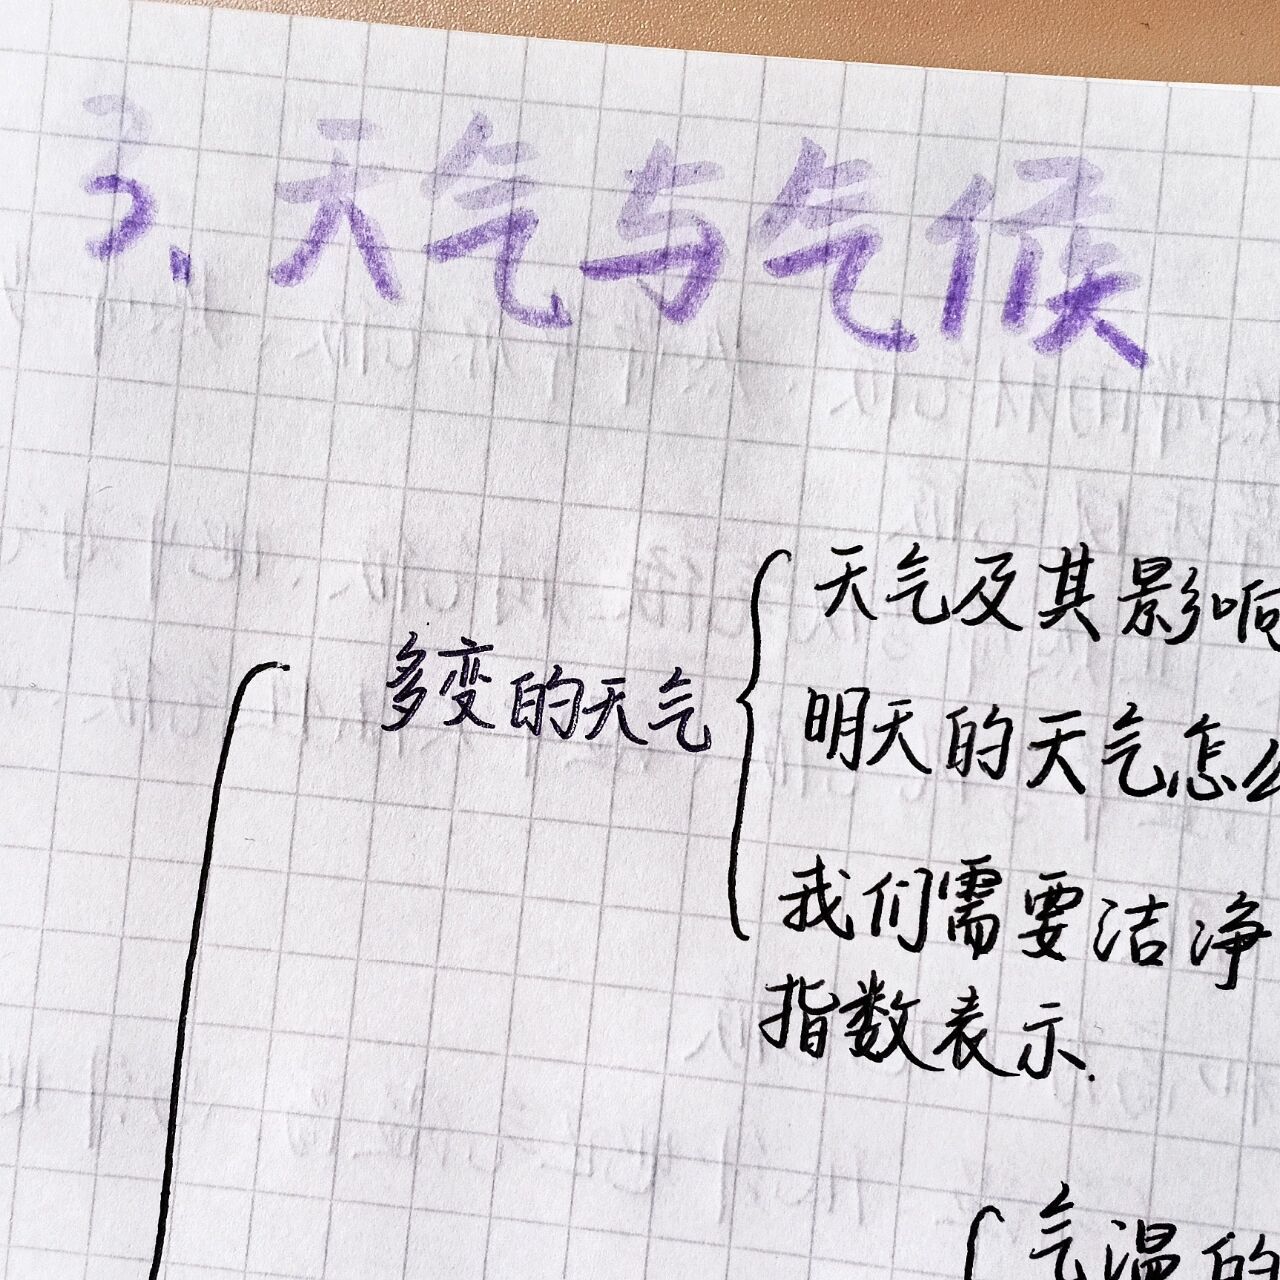 3、天气与气候
天气及其影响
多变的天气
明天的天气怎么
我们需要洁净
指数表示.
气温的